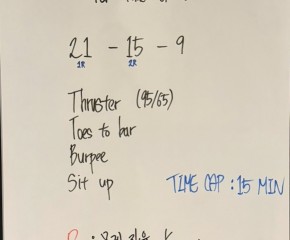 21 - 15 - 9
1R 2R
Thruster (95/65)
Toes to bar
Burpee
Sit up TIME CAP : 15 MIN